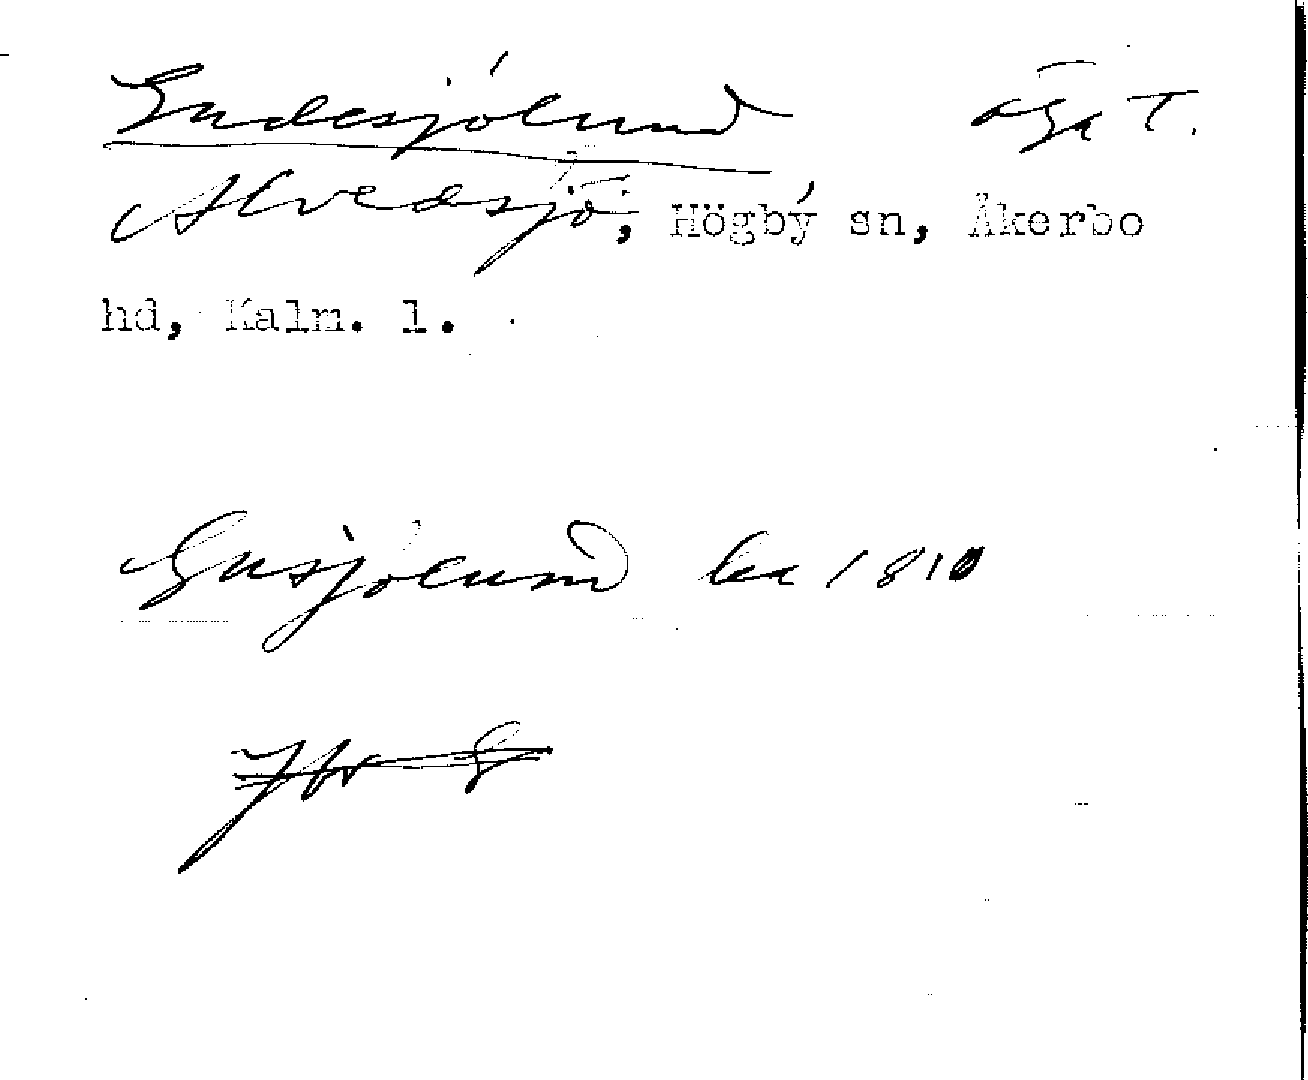 Gudesjölund
Alvedsjö, Högby sn, Åkerbo
hd, Kalm. l.
Gusjölund ka 1810